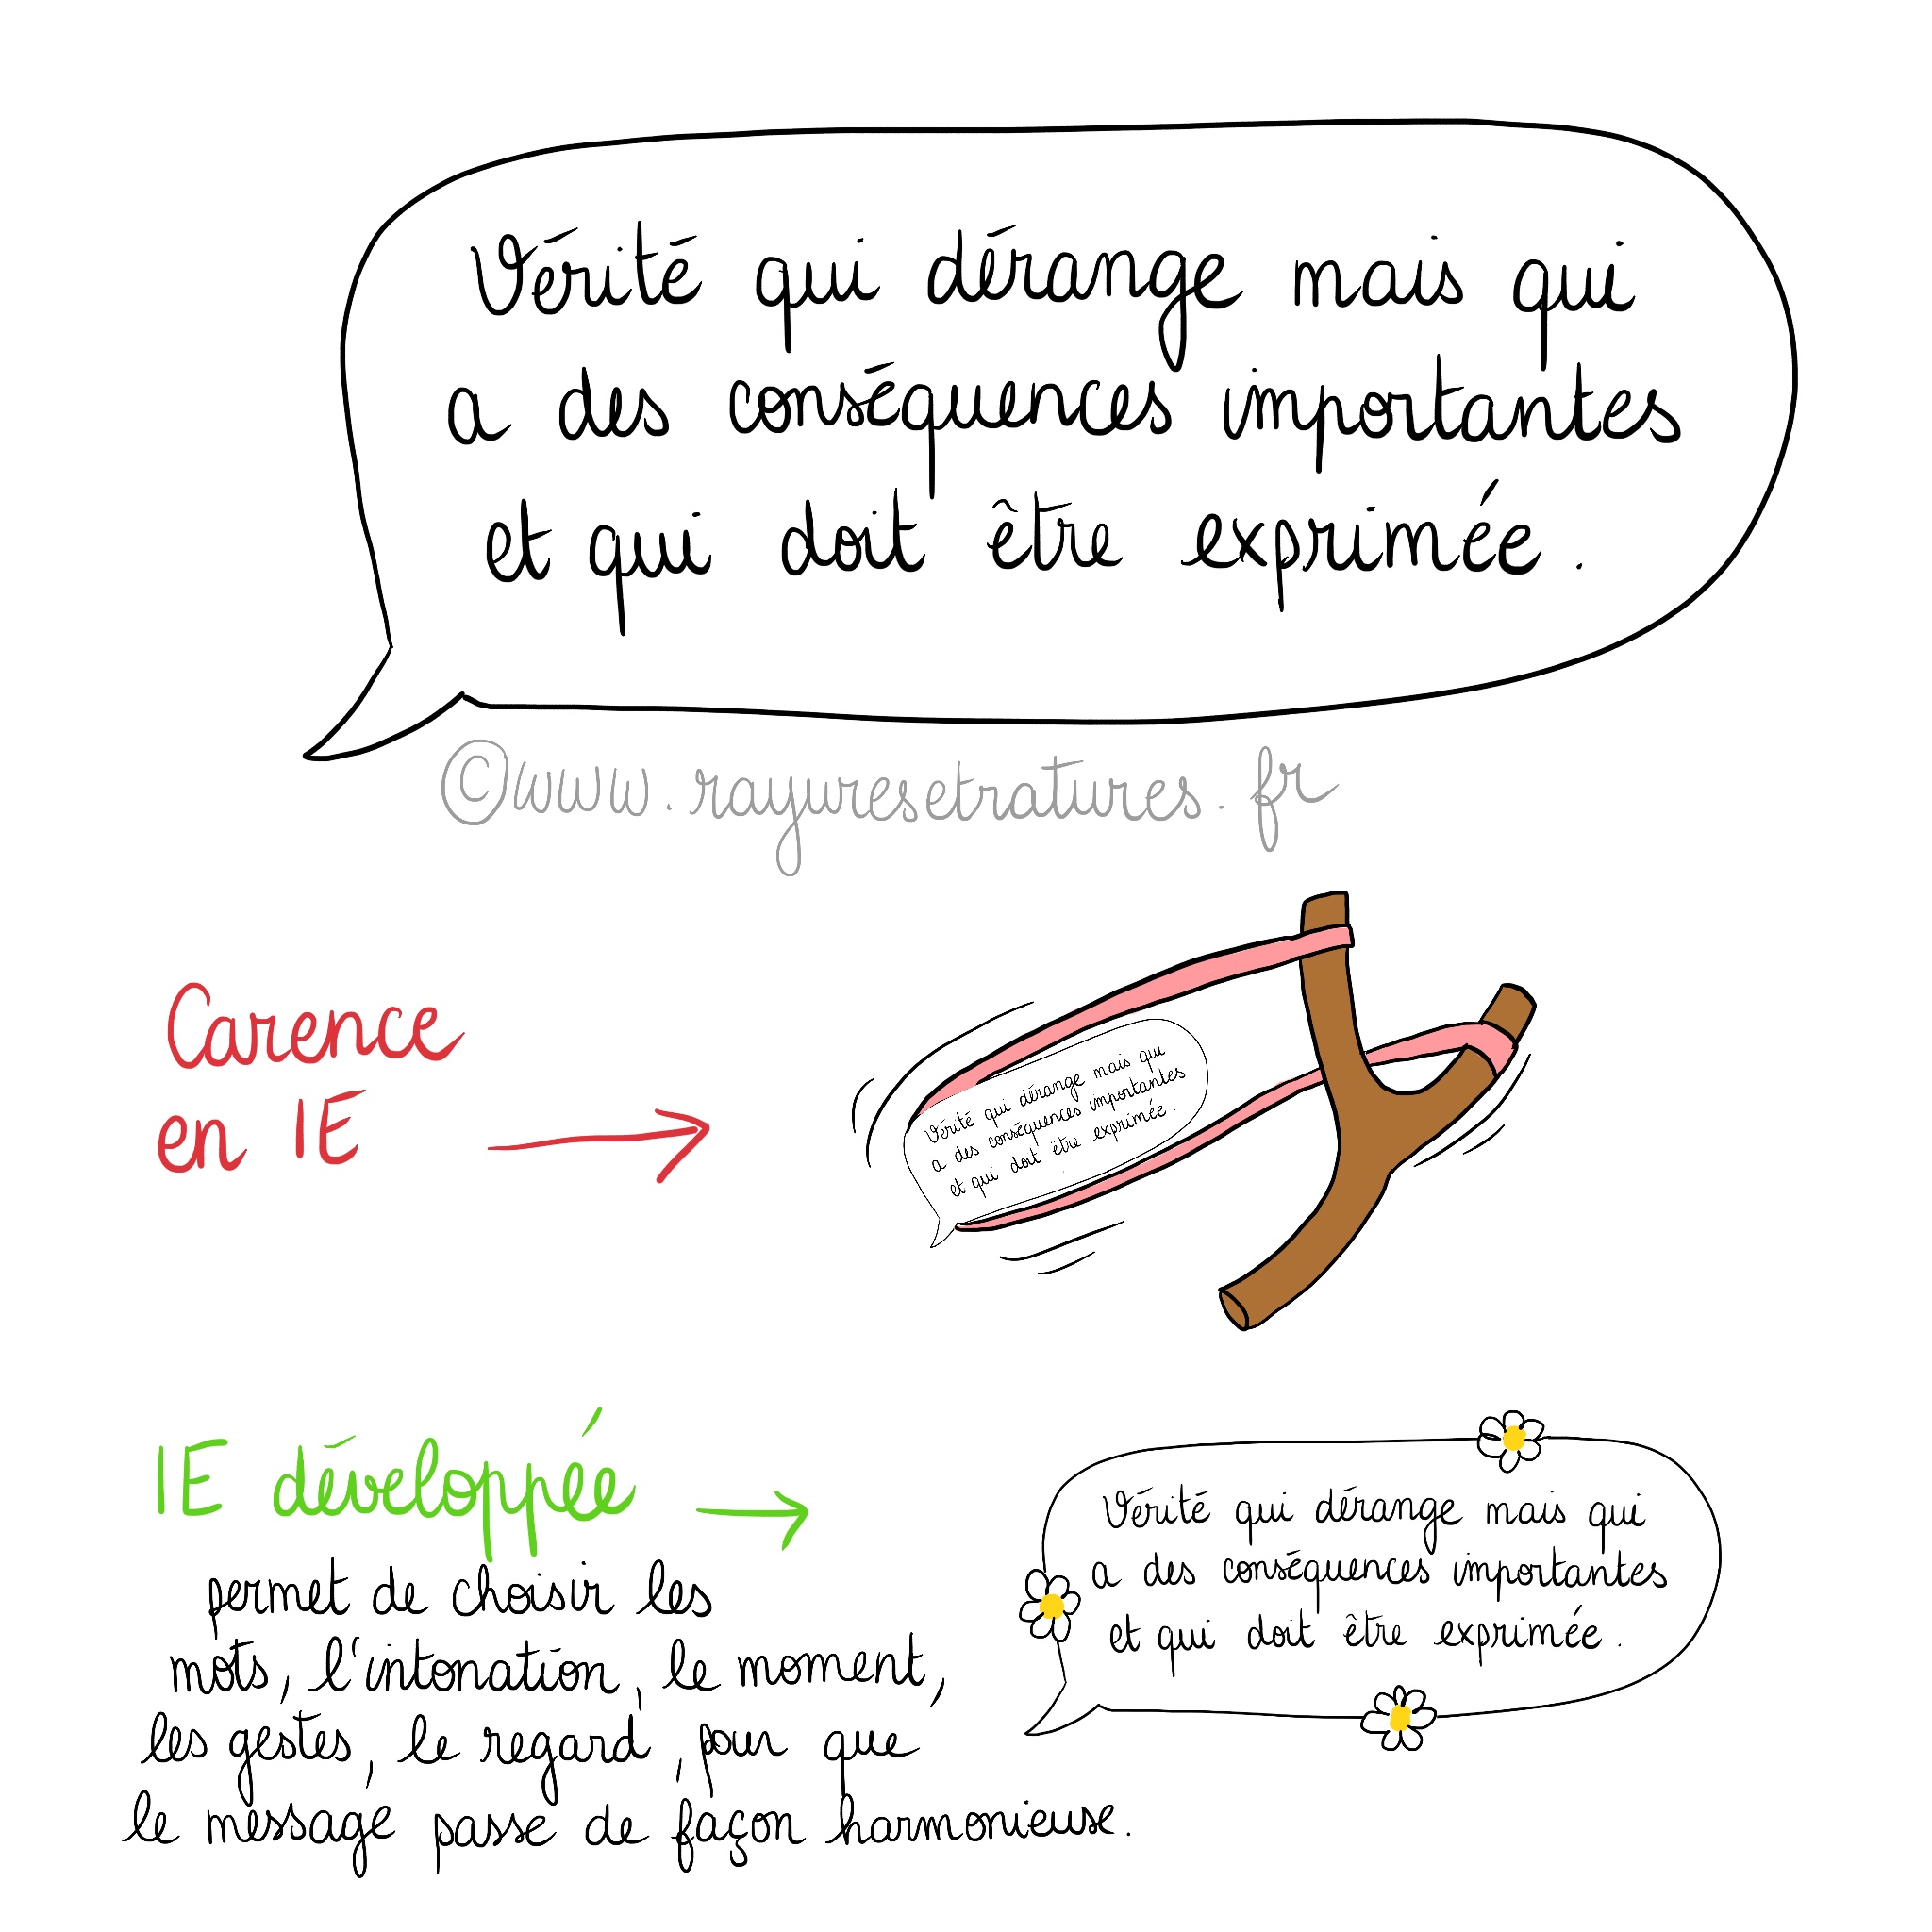 Vérité qui dérange mais qui
a des conséquences importantes
et qui doit être exprimée.
©www.rayuresetratures.fr
Carence
en IE
Vérité qui dérange mais qui
a des conséquences importantes
et qui doit être exprimée.
IE développée
permet de choisir les
mots, l'intonation, le moment,
les gestes, le regard, pour que
le message passe de façon harmonieuse.
Vérité qui dérange mais qui
a des conséquences importantes
et qui doit être exprimée.